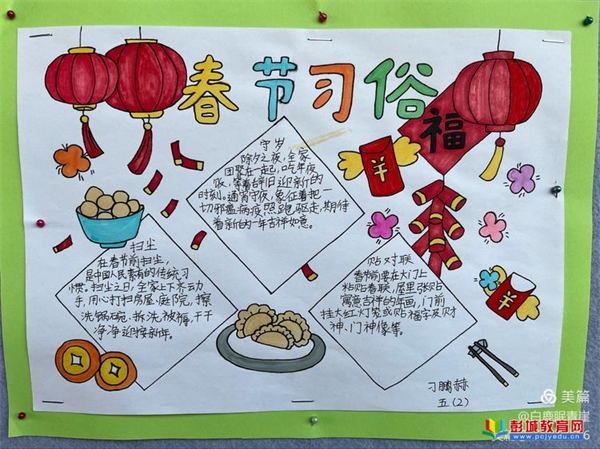 春节习俗
福
守岁
除夕之夜,全家
团聚在一起,吃年夜
饭,等着辞旧迎新的
时刻。通宵守夜,象征着把一
切邪瘟病疫照跑驱走,期待
着新的一年吉祥如意。
扫尘
在春节前扫尘,
是中国人民素有的传统习
惯。扫尘之日,全家上下齐动
手,用心打扫房屋、庭院,擦
洗锅碗、拆洗被褥,干干
净净迎接新年。
贴对联
春节前要在大门上
粘贴春联,屋里张贴
寓意吉祥的年画,门前
挂大红灯笼或贴福字及财
神、门神像等。
刁鹏赫
五(2)
美篇
@白鹿眠青崖
彭城教育网
www.pcjyedu.cn
6